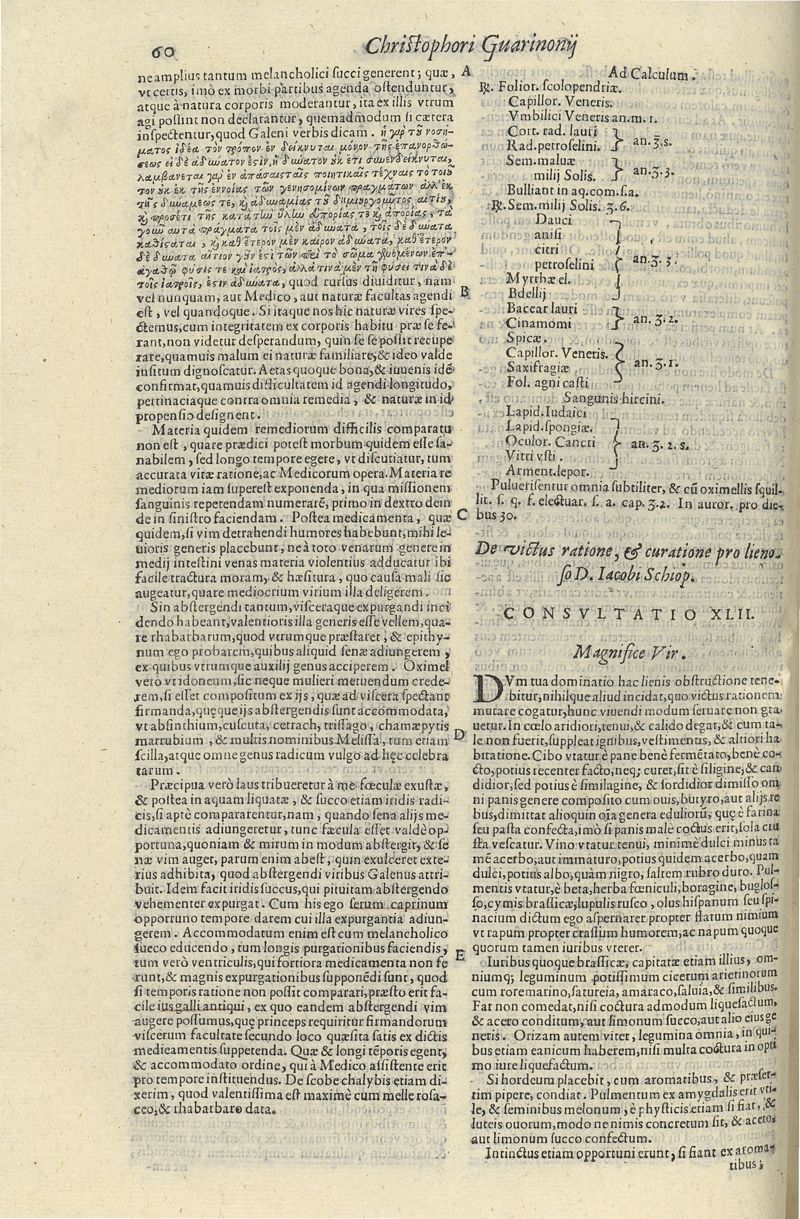 60
Christophori Guarinonij
ne amplius tantum melancholici succi generent; quæ,
vt certus, imò ex morbi partibus agenda ostenduntur,
atque à natura corporis moderantur, ita ex illis vtrum
agi possint non declarantur, quemadmodum si cætera
inspectentur, quod Galeni verbis dicam.
quod rursus diuiditur, nam
vel nunquam, aut Medico, aut naturæ facultas agendi
est, vel quandoque. Si itaque nos hic naturæ vires spe-
ctemus, cum integritatem ex corporis habitu præ se fe-
rant, non videtur desperandum, quin se se possit recupe
rare, quamuis malum ei naturæ familiare, & ideo valde
insitum dignoscatur. Aetas quoque bona, & iuuenis idẽ
confirmat, quamuis difficultatem id agendi longitudo,
pertinaciaque contra omnia remedia, & naturæ in id
propensio designent.
Materia quidem remediorum difficilis comparatu
non est, quare prædici potest morbum quidem esse sa-
nabilem, sed longo tempore egere, vt discutiatur, tum
accurata vitæ ratione, ac Medicorum opera. Materia re
mediorum iam superest exponenda, in qua missionem
sanguinis repetendam numerarẽ, primo in dextro dein
de in sinistro faciendam. Postea medicamenta, quæ
quidem, si vim detrahendi humores habebunt, mihi le-
uioris generis placebunt, ne à toto venarum genere in
medij intestini venas materia violentius adducatur ibi
facile tractura moram, & hæsitura, quo causa mali sic
augeatur, quare mediocrium virium illa deligerem.
Sin abstergendi tantum, visceraque expurgandi inci
dendo habeant, valentioris illa generis esse vellem, qua-
re rhabarbarum, quod vtrumque præstaret, & epithy-
num ego probarem, quibus aliquid senæ adiungerem,
ex quibus vtrumque auxilij genus acciperem. Oximel
vero vt idoneum, sic neque mulieri metuendum crede-
rem, si esset compositum ex ijs, quæ ad viscera spectant
firmanda, quęque ijs abstergendis sunt accommodata,
vt absinthium, cuscuta, cetrach, trissago, chamæpytis
marrubium, & multis nominibus Melissa, tum etiam
scilla, atque omne genus radicum vulgo ad hęc celebra
tarum.
Præcipua verò laus tribueretur à me fœculæ exustæ,
& postea in aquam liquatæ, & succo etiam iridis radi-
cis, si aptè compararentur, nam, quando sena alijs me-
dicamentis adiungeretur, tunc fæcula esset valdè op-
portuna, quoniam & mirum in modum abstergit, & se
næ vim auget, parum enim abest, quin exulceret exte-
rius adhibita, quod abstergendi viribus Galenus attri-
buit. Idem facit iridis succus, qui pituitam abstergendo
vehementer expurgat. Cum his ego serum caprinum
opportuno tempore darem cui illa expurgantia adiun-
gerem. Accommodatum enim est cum melancholico
succo educendo, tum longis purgationibus faciendis,
tum verò ventriculis, qui fortiora medicamenta non fe
runt, & magnis expurgationibus supponẽdi sunt, quod
si temporis ratione non possit comparari, præsto erit fa-
cile ius galli antiqui, ex quo eandem abstergendi vim
augere possumus, quę princeps requiritur firmandorum
viscerum facultate secundo loco quæsita satis ex dictis
medicamentis suppetenda. Quæ & longi tẽporis egent,
& accommodato ordine, qui à Medico assistente erit
pro tempore instituendus. De scobe chalybis etiam di-
xerim, quod valentissima est maximè cum melle rosa-
ceo, & rhabarbaro data.
A
B
C
D
E
Ad Calculum.
℞. Folior. scolopendriæ.
Capillor. Veneris.
Vmbilici Veneris an. m. 1.
Cort. rad. lauri
Rad. petroselini. an. ʒ. s.
Sem. maluæ
milij Solis. an. ʒ. 3.
Bulliant in aq. com. s. a.
℞. Sem. milij Solis. ʒ. 6.
Dauci
anisi
citri
petroselini an. ʒ. 3.
Myrrhæ el.
Bdellij
Baccar lauri
Cinamomi an. ʒ. 2.
Spicæ.
Capillor. Veneris.
Saxifragiæ an. ʒ. 1.
Fol. agni casti
Sangunis hircini.
Lapid. Iudaici
Lapid. spongiæ.
Oculor. Cancri an. ʒ. 2. s.
Vitri vsti.
Arment. lepor.
Puluerisentur omnia subtiliter, & cũ oximellis squil-
lit. s. q. f. electuar. s. a. cap. ʒ. 2. In auror. pro die-
bus 30.
De victus ratione, & curatione pro lieno-
so D. Iacobi Schiop.
CONSVLTATIO XLII.
Magnifice Vir.
DVm tua dominatio hac lienis obstructione tene-
bitur, nihilque aliud incidat, quo victus rationem
mutare cogatur, hunc viuendi modum seruare non gra
uetur. In cœlo aridiori, tenui, & calido degat, & cum ta-
le non fuerit, suppleat ignibus, vestimentis, & altiori ha
bitatione. Cibo vtatur è pane benè fermẽtato, benè co-
cto, potius recenter facto, neq; curet, sit è siligine, & can
didior, sed potius è similagine, & sordidior dimisso om
ni panis genere composito cum ouis, butyro, aut alijs re
bus, dimittat alioquin oia genera eduliorũ, quę è farina
seu pasta confecta, imò si panis malè coctus erit, sola cru
sta vescatur. Vino vtatur tenui, minimè dulci minus ta
mẽ acerbo, aut immaturo, potius quidem acerbo, quam
dulci, potius albo, quàm nigro, saltem rubro duro. Pul-
mentis vtatur, è beta, herba fœniculi, boragine, buglos-
so, cymis brassicæ, lupulis rusco, olus hispanum seu spi-
nacium dictum ego aspernarer propter flatum nimium
vt rapum propter crassum humorem, ac napum quoque
quorum tamen iuribus vterer.
Iuribus quoque brassicæ, capitatæ etiam illius, om-
niumq; leguminum potissimum cicerum arietinorum
cum roremarino, satureia, amaraco, saluia, & similibus.
Fat non comedat, nisi coctura admodum liquefactum,
& acero conditum, aut limonum succo, aut alio eius ge
neris. Orizam autem vitet, legumina omnia, in qui-
bus etiam eanicum haberem, nisi multa coctura in opti
mo iure liquefactum.
Si hordeum placebit, cum aromatibus, & præser-
tim pipere, condiat. Pulmentum ex amygdalis erit vti-
le, & seminibus melonum, è physticis etiam si fiat, &
luteis ouorum, modo ne nimis concretum sit, & aceto
aut limonum succo confectum.
Intinctus etiam opportuni erunt, si fiant ex aroma-
tibus;